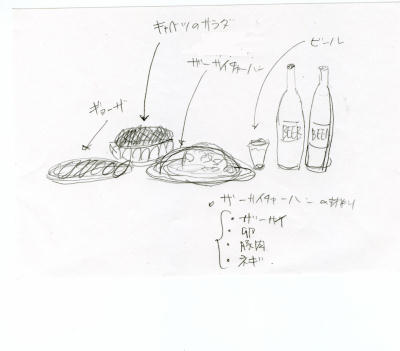 キャベツのサラダ
ビール
ザーサイチャーハン
ギョーザ
BEER
BEER
。ザーサイチャーハンの材料
・ザーサイ
・卵
・豚肉
・ネギ.